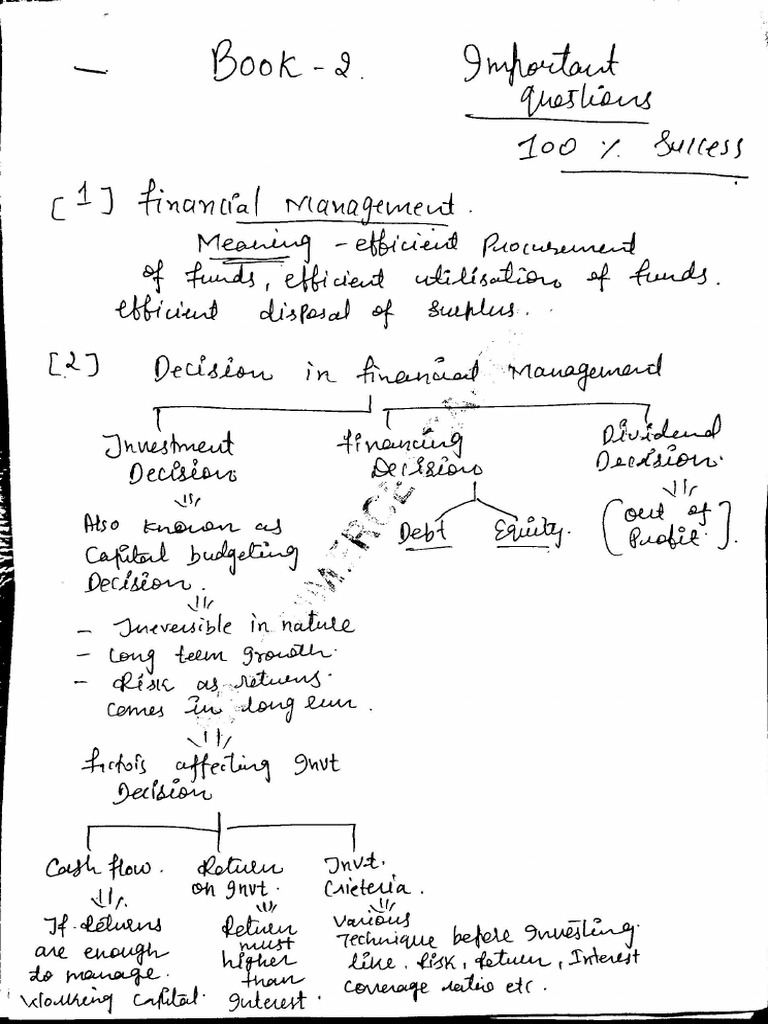 — Book - 2. Important
Questions
100 % Success
[1] Financial Management.
Meaning - efficient Procurement
of funds, efficient utilisation of funds.
efficient disposal of surplus..
[2] Decision in financial Management
Investment Decision
Also known as
Capital budgeting
Decision.
- Irreversible in nature
- Long term growth.
- Risk as returns.
comes in long run.
Factors affecting Invt
Decision
Cash flow.
If Returns
are enough
to manage.
Working Capital.
Return
on Invt.
Return
must
higher
than
Interest.
Invt.
Crieteria.
Various
Technique before Investing.
like. Risk, Return, Interest
coverage ratio etc.
Financing
Decision
Debt Equity.
Dividend
Decision.
[out of
Profit.].